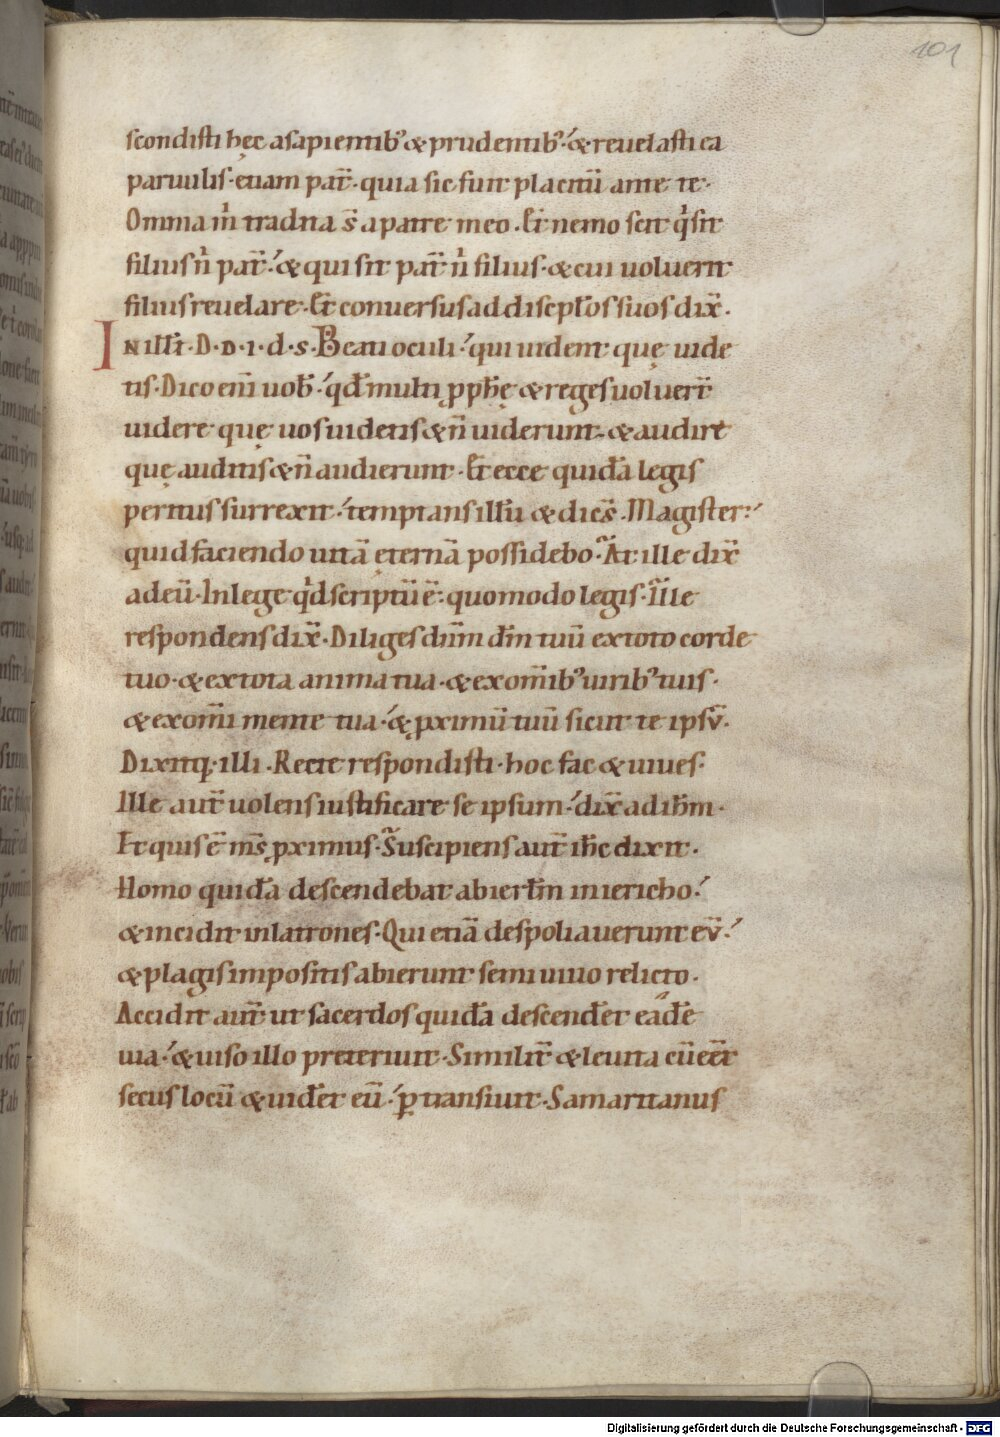 101
scondisti hęc asapientib' & prudentib'. & reuelasti ea
paruulis. etiam pat̄. quia sic fuit placitū ante te.
Omnia m̍ tradita s̄ apatre meo. Et nemo scit q̍s sit
filius n̍ pat̄. & qui sit pat̄ n̍ filius. & cui uoluerit
filius reuelare. Et conuersus ad discpłos suos dix̄.
IN illı̄ t. D. D. I. d. s. Beati oculi. qui uident quę uide
tis. Dico eni̅ uob̅. qđ multi ꝓph̅ę & reges uoluer̄
uidere quę uos uidetis & n̄ uiderunt. & audire
quę auditis & n̄ audierunt. Et ecce quidā legis
peritus surrexit. temptans illū & dicēs. Magister.
quid faciendo uitā ęternā possidebo. At ille dix̄
adeū. In lege q̍d scriptū ē. quomodo legis. Ille
respondens dix̄. Diliges dn̄m dm̄ tuū extoto corde
tuo. & extota anima tua. & exom̅ib' uirib' tuis.
& exom̅i mente tua. & ꝓximū tuū sicut te ipsū.
Dixitq. illi. Recte respondisti. hoc fac & uiues.
Ille aut̄ uolens iustificare se ipsum. dix̄ ad ih̅m.
Et quis ē m̅s ꝓximus. Suscipiens aut̄ ih̅c dixit.
Homo quidā descendebat abierl̅m iniericho.
& incidit inlatrones. Qui etiā despoliauerunt eū.
& plagis impositis abierunt semi uiuo relicto.
Accidit aut̄ ut sacerdos quidā descender̄ eādē
uia. & uiso illo preteriuit. Similit̄ & leuita cū eēt
secus locū & uider̄ eū. ꝑtransiuit. Samaritanus
Digitalisierung gefördert durch die Deutsche Forschungsgemeinschaft - DFG